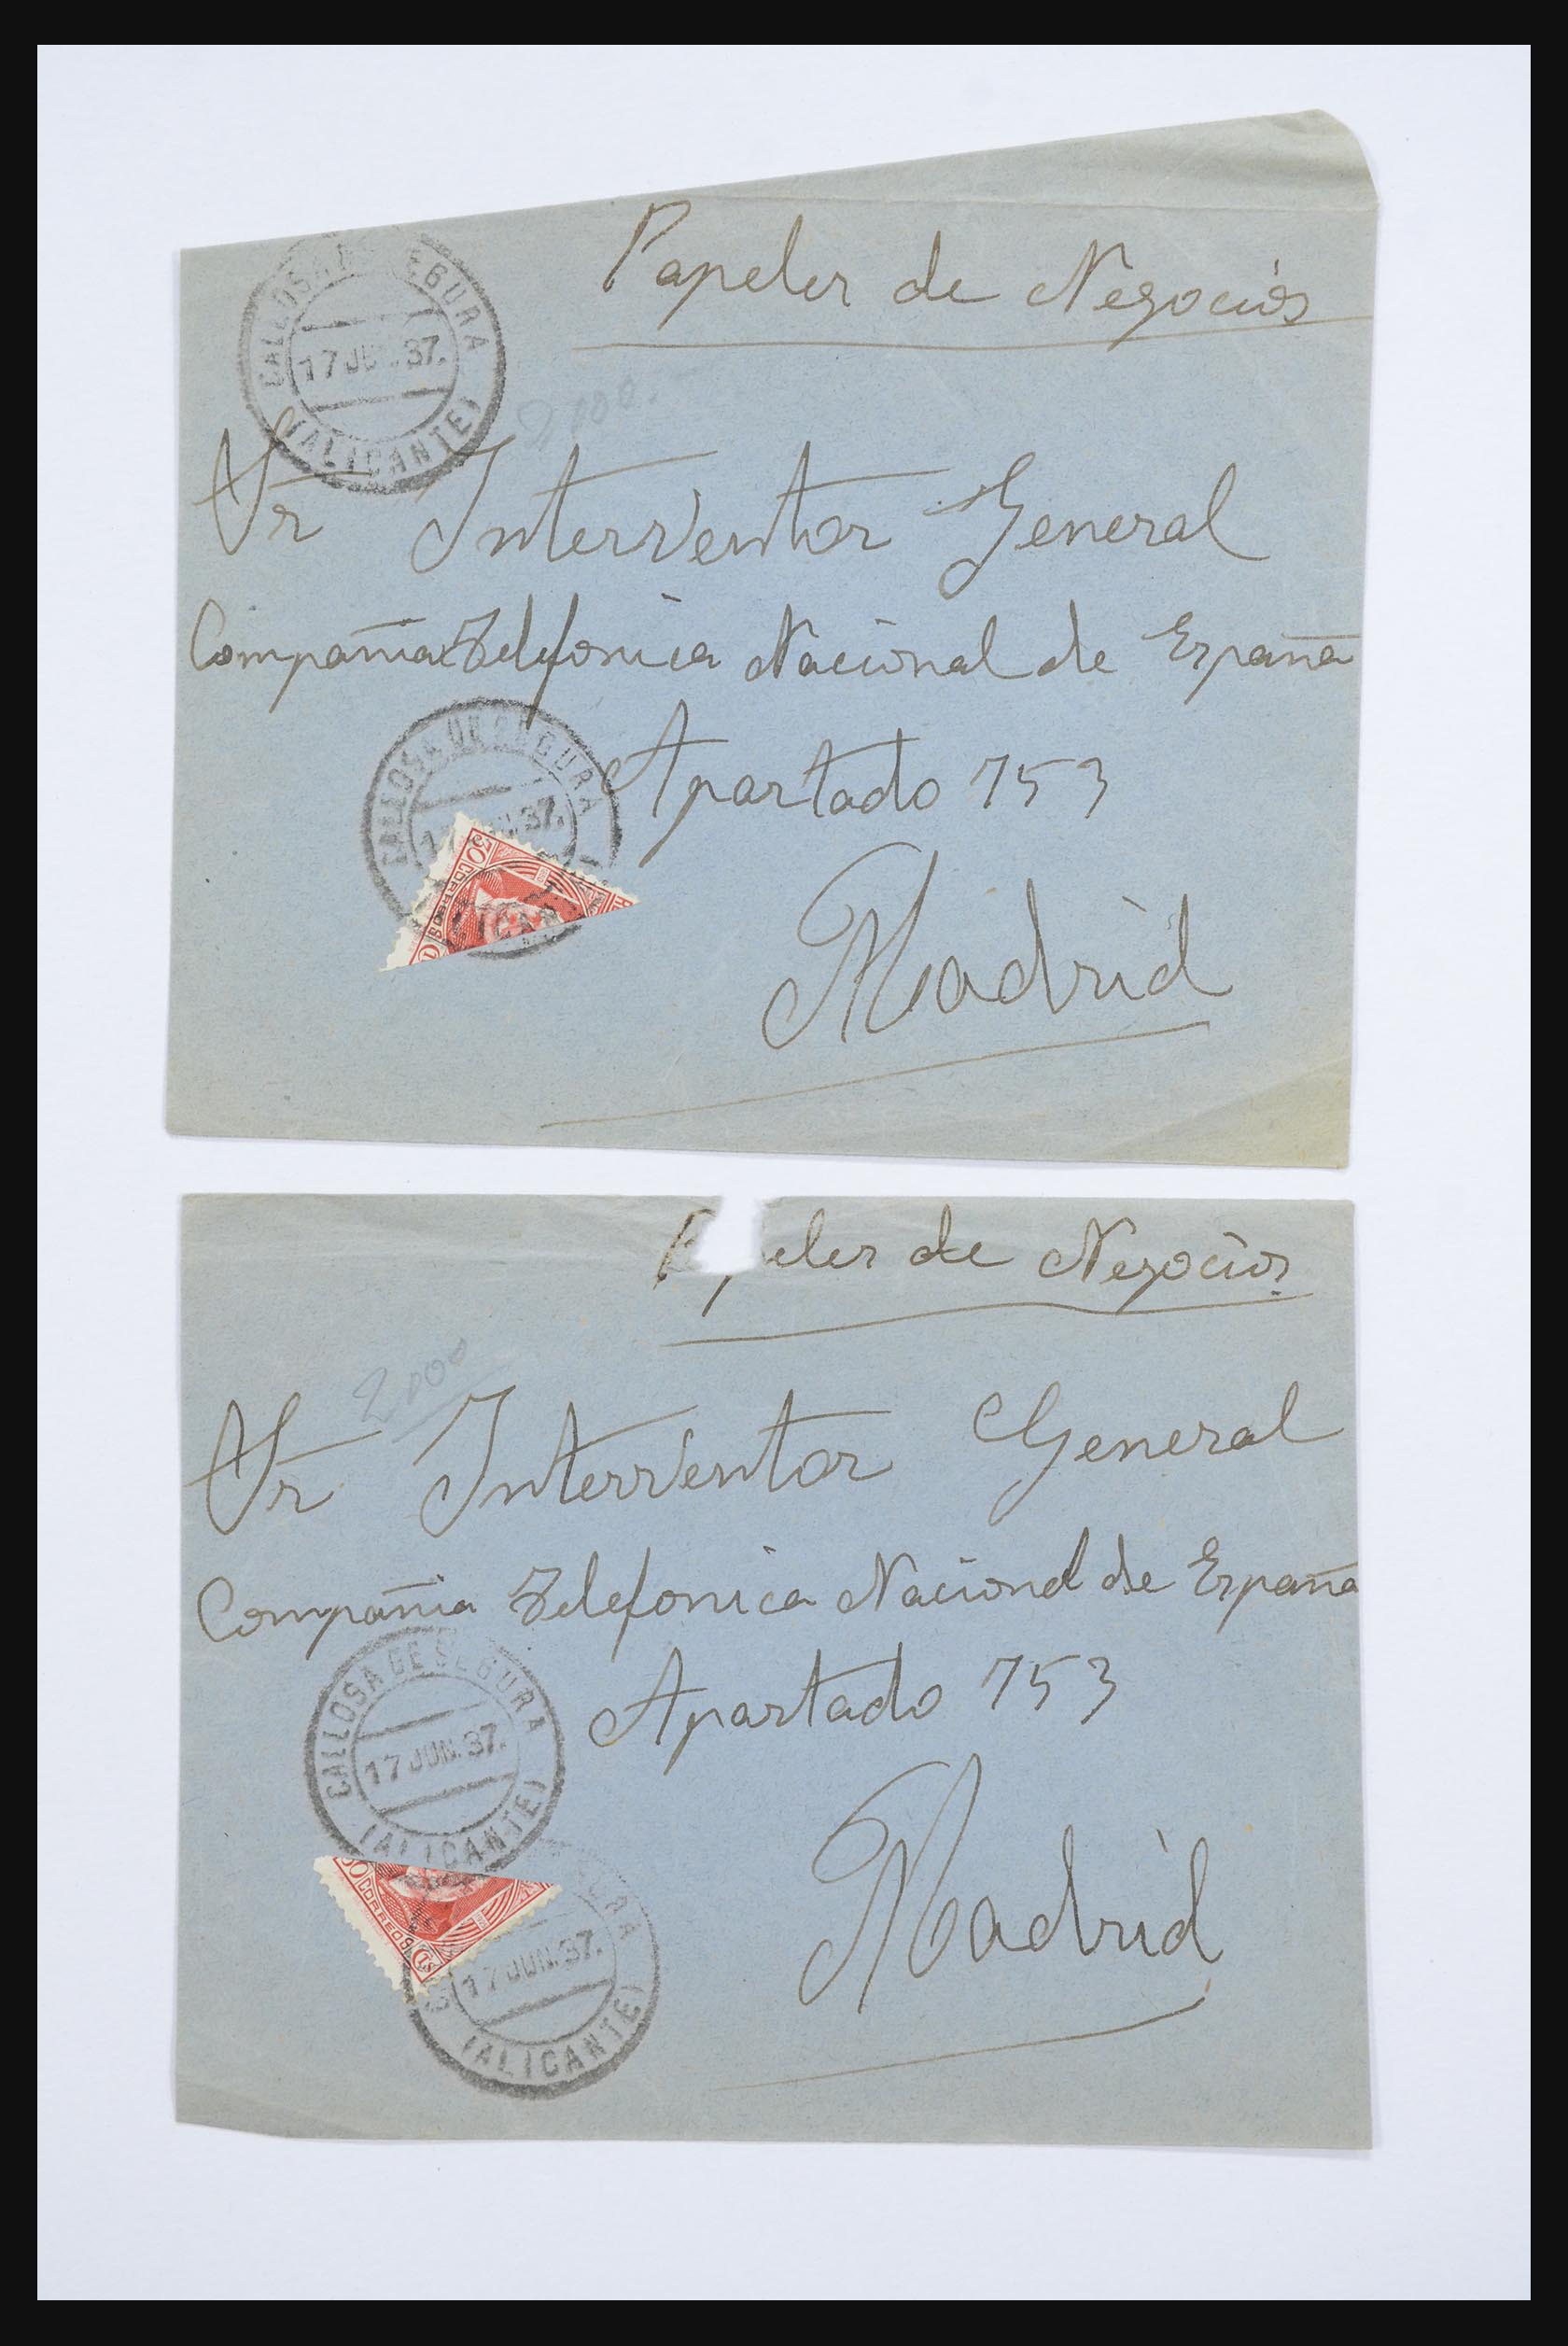 Papeles de Negocios
CALLOSA DE SEGURA
17 JUN. 37.
(ALICANTE)
2000.
Sr Interventor General
Compañia Telefonica Nacional de España
Apartado 753
CALLOSA DE SEGURA
17 JUN. 37.
30 CORREOS
Madrid
Papeles de Negocios
2000
Sr Interventor General
Compañia Telefonica Nacional de España
Apartado 753
CALLOSA DE SEGURA
17 JUN. 37.
(ALICANTE)
30 CORREOS Cts
Madrid
17 JUN. 37.
(ALICANTE)